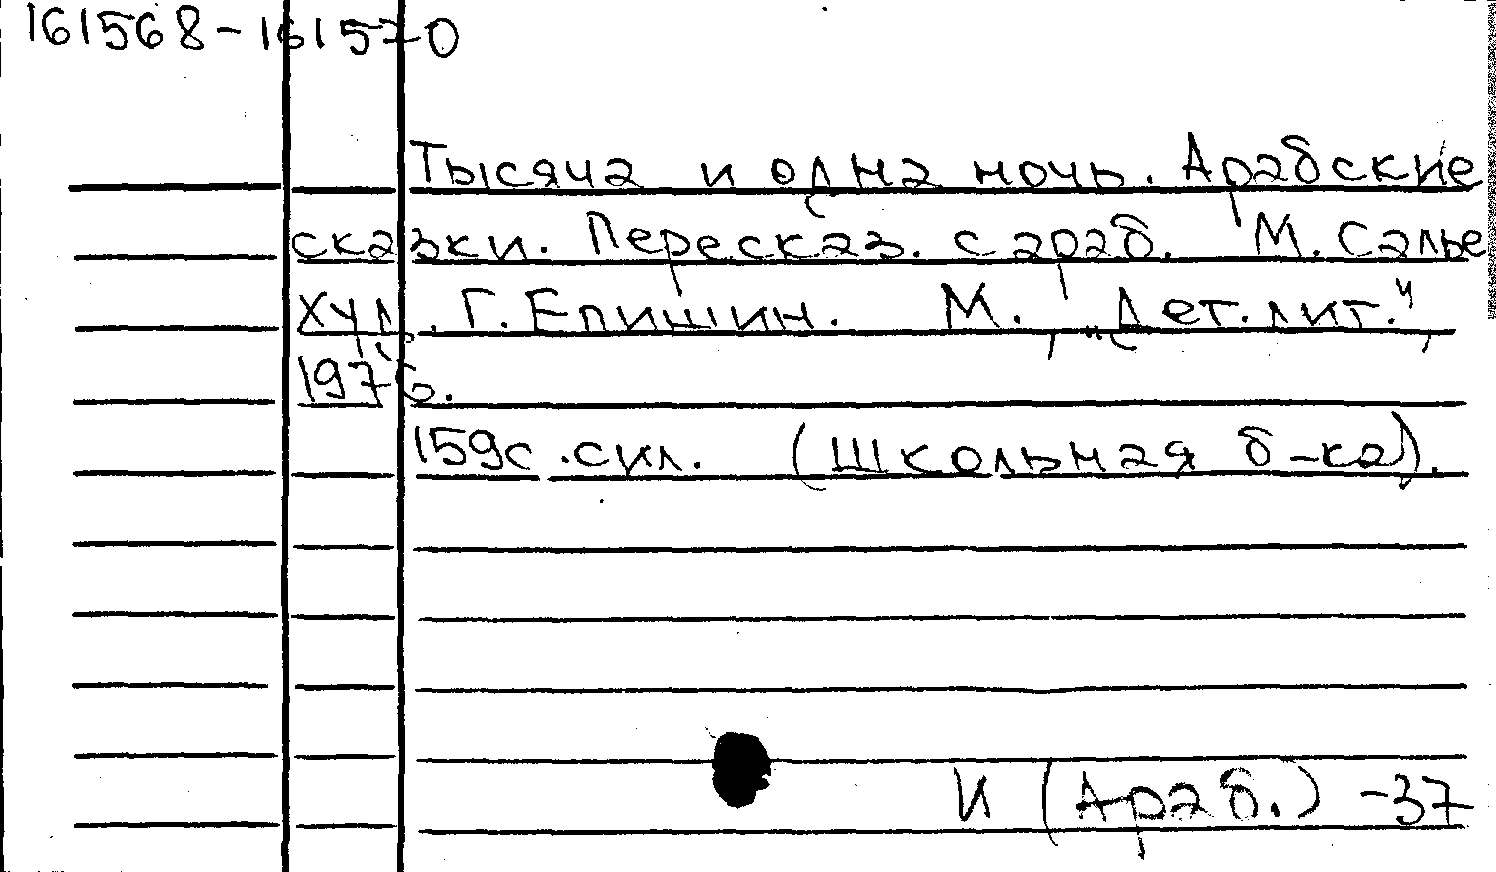 161568-161570
Тысяча и одна ночь. Арабские
сказки. Пересказ. с араб. М. Салье
Худ. Г. Епишин. М., „Дет. лит.",
1976.
159с. с ил. (Школьная б-ка).
И (Араб.) -37